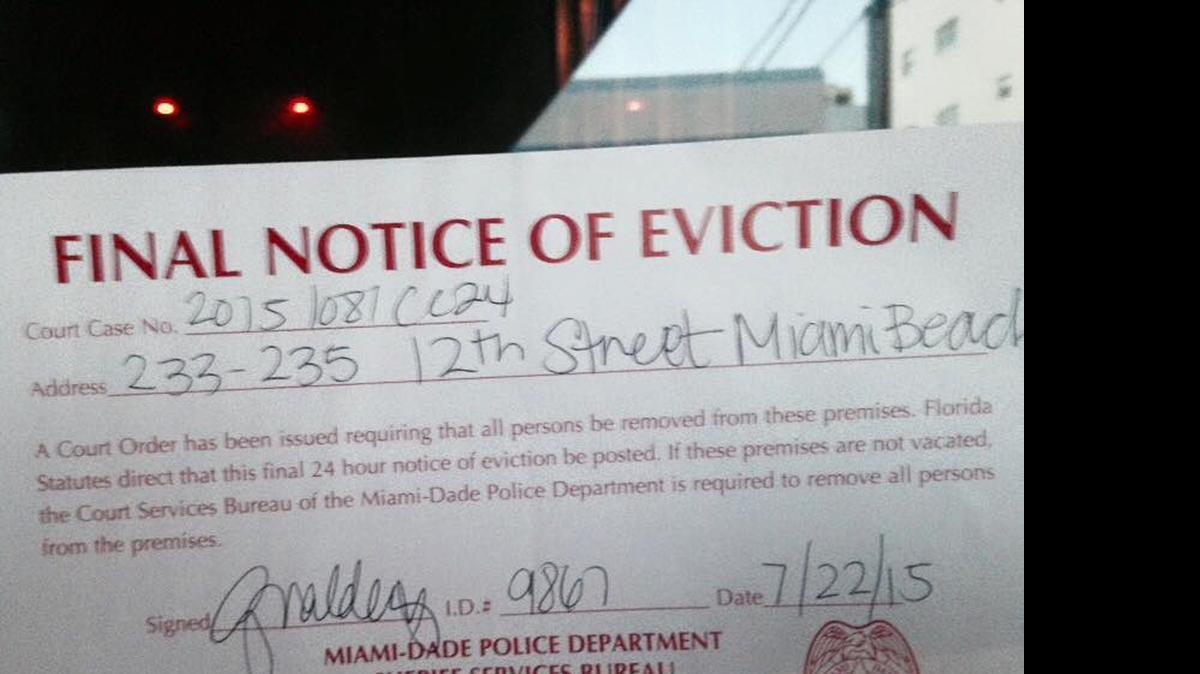 FINAL NOTICE OF EVICTION
Court Case No. 2015 1081 CC24
Address 233-235 12th Street Miami Beach
A Court Order has been issued requiring that all persons be removed from these premises. Florida
Statutes direct that this final 24 hour notice of eviction be posted. If these premises are not vacated,
the Court Services Bureau of the Miami-Dade Police Department is required to remove all persons
from the premises.
Signed I.D.# 9867 Date 7/22/15
MIAMI-DADE POLICE DEPARTMENT
SERVICES BUREAU